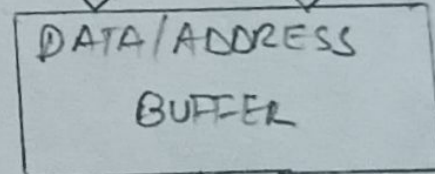 DATA/ADDRESS
BUFFER